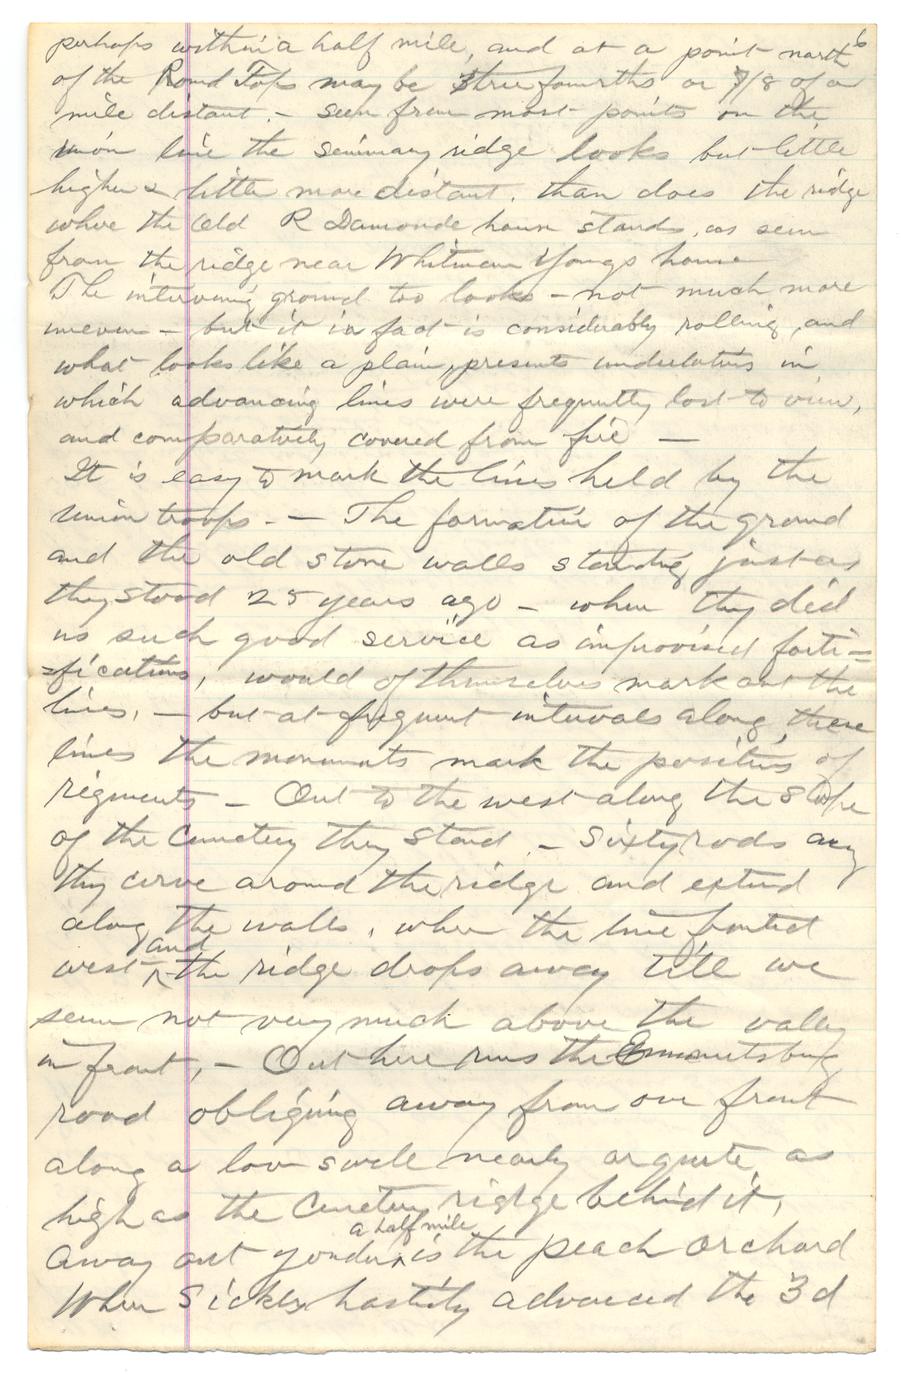 6
perhaps within a half mile, and at a point north
of the Round Tops may be three fourths or 7/8 of a
mile distant. - Seen from most points on the
union line the seminary ridge looks but little
higher & little more distant, than does the ridge
where the Old R Damonde house stands, as seen
from the ridge near Whitman Youngs house
The intervening ground too looks - not much more
uneven - but it in fact is considerably rolling, and
what looks like a plain, presents undulations in
which advancing lines were frequently lost to view,
and comparatively covered from fire —
It is easy to mark the lines held by the
union troops. — The formation of the ground
and the old stone walls standing just as
they stood 25 years ago - when they did
us such good service as improvised forti=
=fications, would of themselves mark out the
lines, - but at frequent intervals along these
lines the monuments mark the positions of
regiments - Out to the west along the slope
of the Cemetery they stand. - Sixty rods away
they curve around the ridge and extend
along the walls, where the line fronted
west ^and the ridge drops away till we
seem not very much above the valley
in front, - Out here runs the Emmettsburg
road obliquing away from our front
along a low swell nearly or quite as
high as the Cemetery ridge behind it,
Away out yonder ^a half mile is the peach orchard
When Sickles hastily advanced the 3d